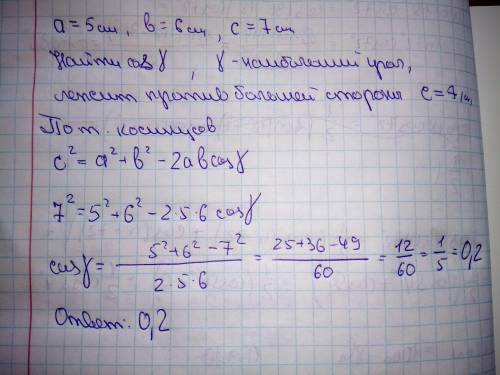 a = 5 см, в = 6 см, с = 7 см
Найти cos γ, γ - наибольший угол,
лежит против большей стороны с = 7 см.
По т. косинусов
c² = a² + в² - 2aв cos γ
7² = 5² + 6² - 2·5·6 cos γ
cos γ = (5² + 6² - 7²) / (2·5·6) = (25 + 36 - 49) / 60 = 12/60 = 1/5 = 0,2
Ответ: 0,2